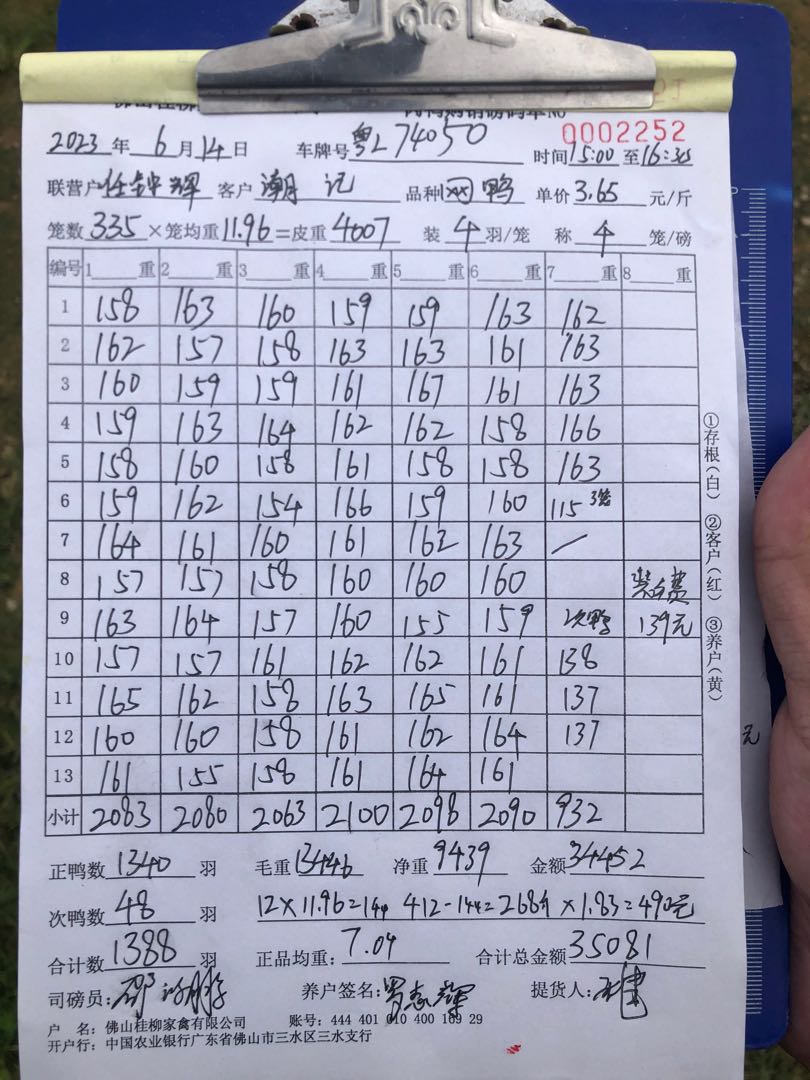 0002252
2023 年 6 月 14 日 车牌号 粤L74050 时间 15:00 至 16:30
联营户 任钟辉 客户 潮记 品种 网鸭 单价 3.65 元/斤
笼数 335 ×笼均重 11.96 =皮重 4007 装 4 羽/笼 称 4 笼/磅
编号 1 重 2 重 3 重 4 重 5 重 6 重 7 重 8 重
1 158 163 160 159 159 163 162
2 162 157 158 163 163 161 163
3 160 159 159 161 167 161 163
4 159 163 164 162 162 158 166
5 158 160 158 161 158 158 163
6 159 162 154 166 159 160 115 3笼
7 164 161 160 161 162 163 /
8 157 157 158 160 160 160 装车费
9 163 164 157 160 155 159 次鸭 139元
10 157 157 161 162 162 161 138
11 165 162 158 163 165 161 137
12 160 160 158 161 162 164 137
13 161 155 158 161 164 161
小计 2083 2080 2063 2100 2098 2090 932
正鸭数 1340 羽 毛重 13446 净重 9439 金额 34452
次鸭数 48 羽 12×11.96=144 412-144=268斤×1.83=490元
合计数 1388 羽 正品均重: 7.04 合计总金额 35081
司磅员: 养户签名: 提货人:
户 名: 佛山桂柳家禽有限公司 账号: 444 401 010 400 169 29
开户行: 中国农业银行广东省佛山市三水区三水支行
①存根(白) ②客户(红) ③养户(黄)
元